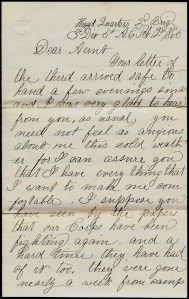 Head Quarters 3d Brig
3d Div 5th A.C. Feb 12th 1865
Dear Aunt
Your letter of
the third arrived safe to
hand a few evenings since
and I was very glad to hear
from you, as usual you
need not feel as anxious
about me this cold weath
er for I can assure you
that I have every thing that
I want to make me com
portable. I suppose you
have seen by the papers
that our Corps have been
fighting again. and a
hard time they have had
of it too. they were gone
nearly a week from camp